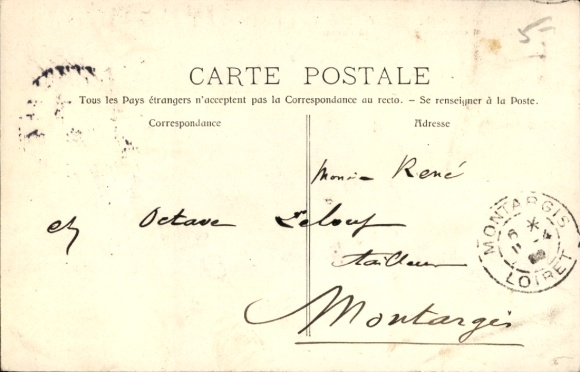 5-
CARTE POSTALE
Tous les Pays étrangers n'acceptent pas la Correspondance au recto. — Se renseigner à la Poste.
Correspondance
Adresse
René
Octave
tailleur
Montargis
MONTARGIS
LOIRET